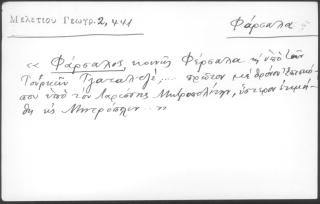 Μελετίου Γεωγρ. 2, 441
Φάρσαλα
« Φάρσαλος, κοινῶς Φέρσαλα ἢ ὑπὸ τῶν
Τούρκων ... πρῶτον μὲ θρόνον Ἐπισκό-
που ὑπὸ τὸν Λαρίσσης Μητροπολίτην, ὕστερον ἐτιμή-
θη εἰς Μητρόπολιν .. »